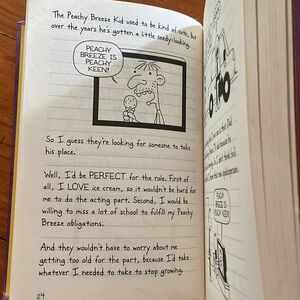 The Peachy Breeze Kid used to be kind of cute, but
over the years he's gotten a little seedy-looking.
PEACHY
BREEZE IS
PEACHY
KEEN!!
So I guess they're looking for someone to take
his place.
Well, I'd be PERFECT for the role. First of
all, I LOVE ice cream, so it wouldn't be hard for
me to do the acting part. Second, I would be
willing to miss a lot of school to fulfill my Peachy
Breeze obligations.
And they wouldn't have to worry about me
getting too old for the part, because I'd take
whatever I needed to take to stop growing.
24
PEACHY
BREEZE
IS PEACHY
KEEN!!